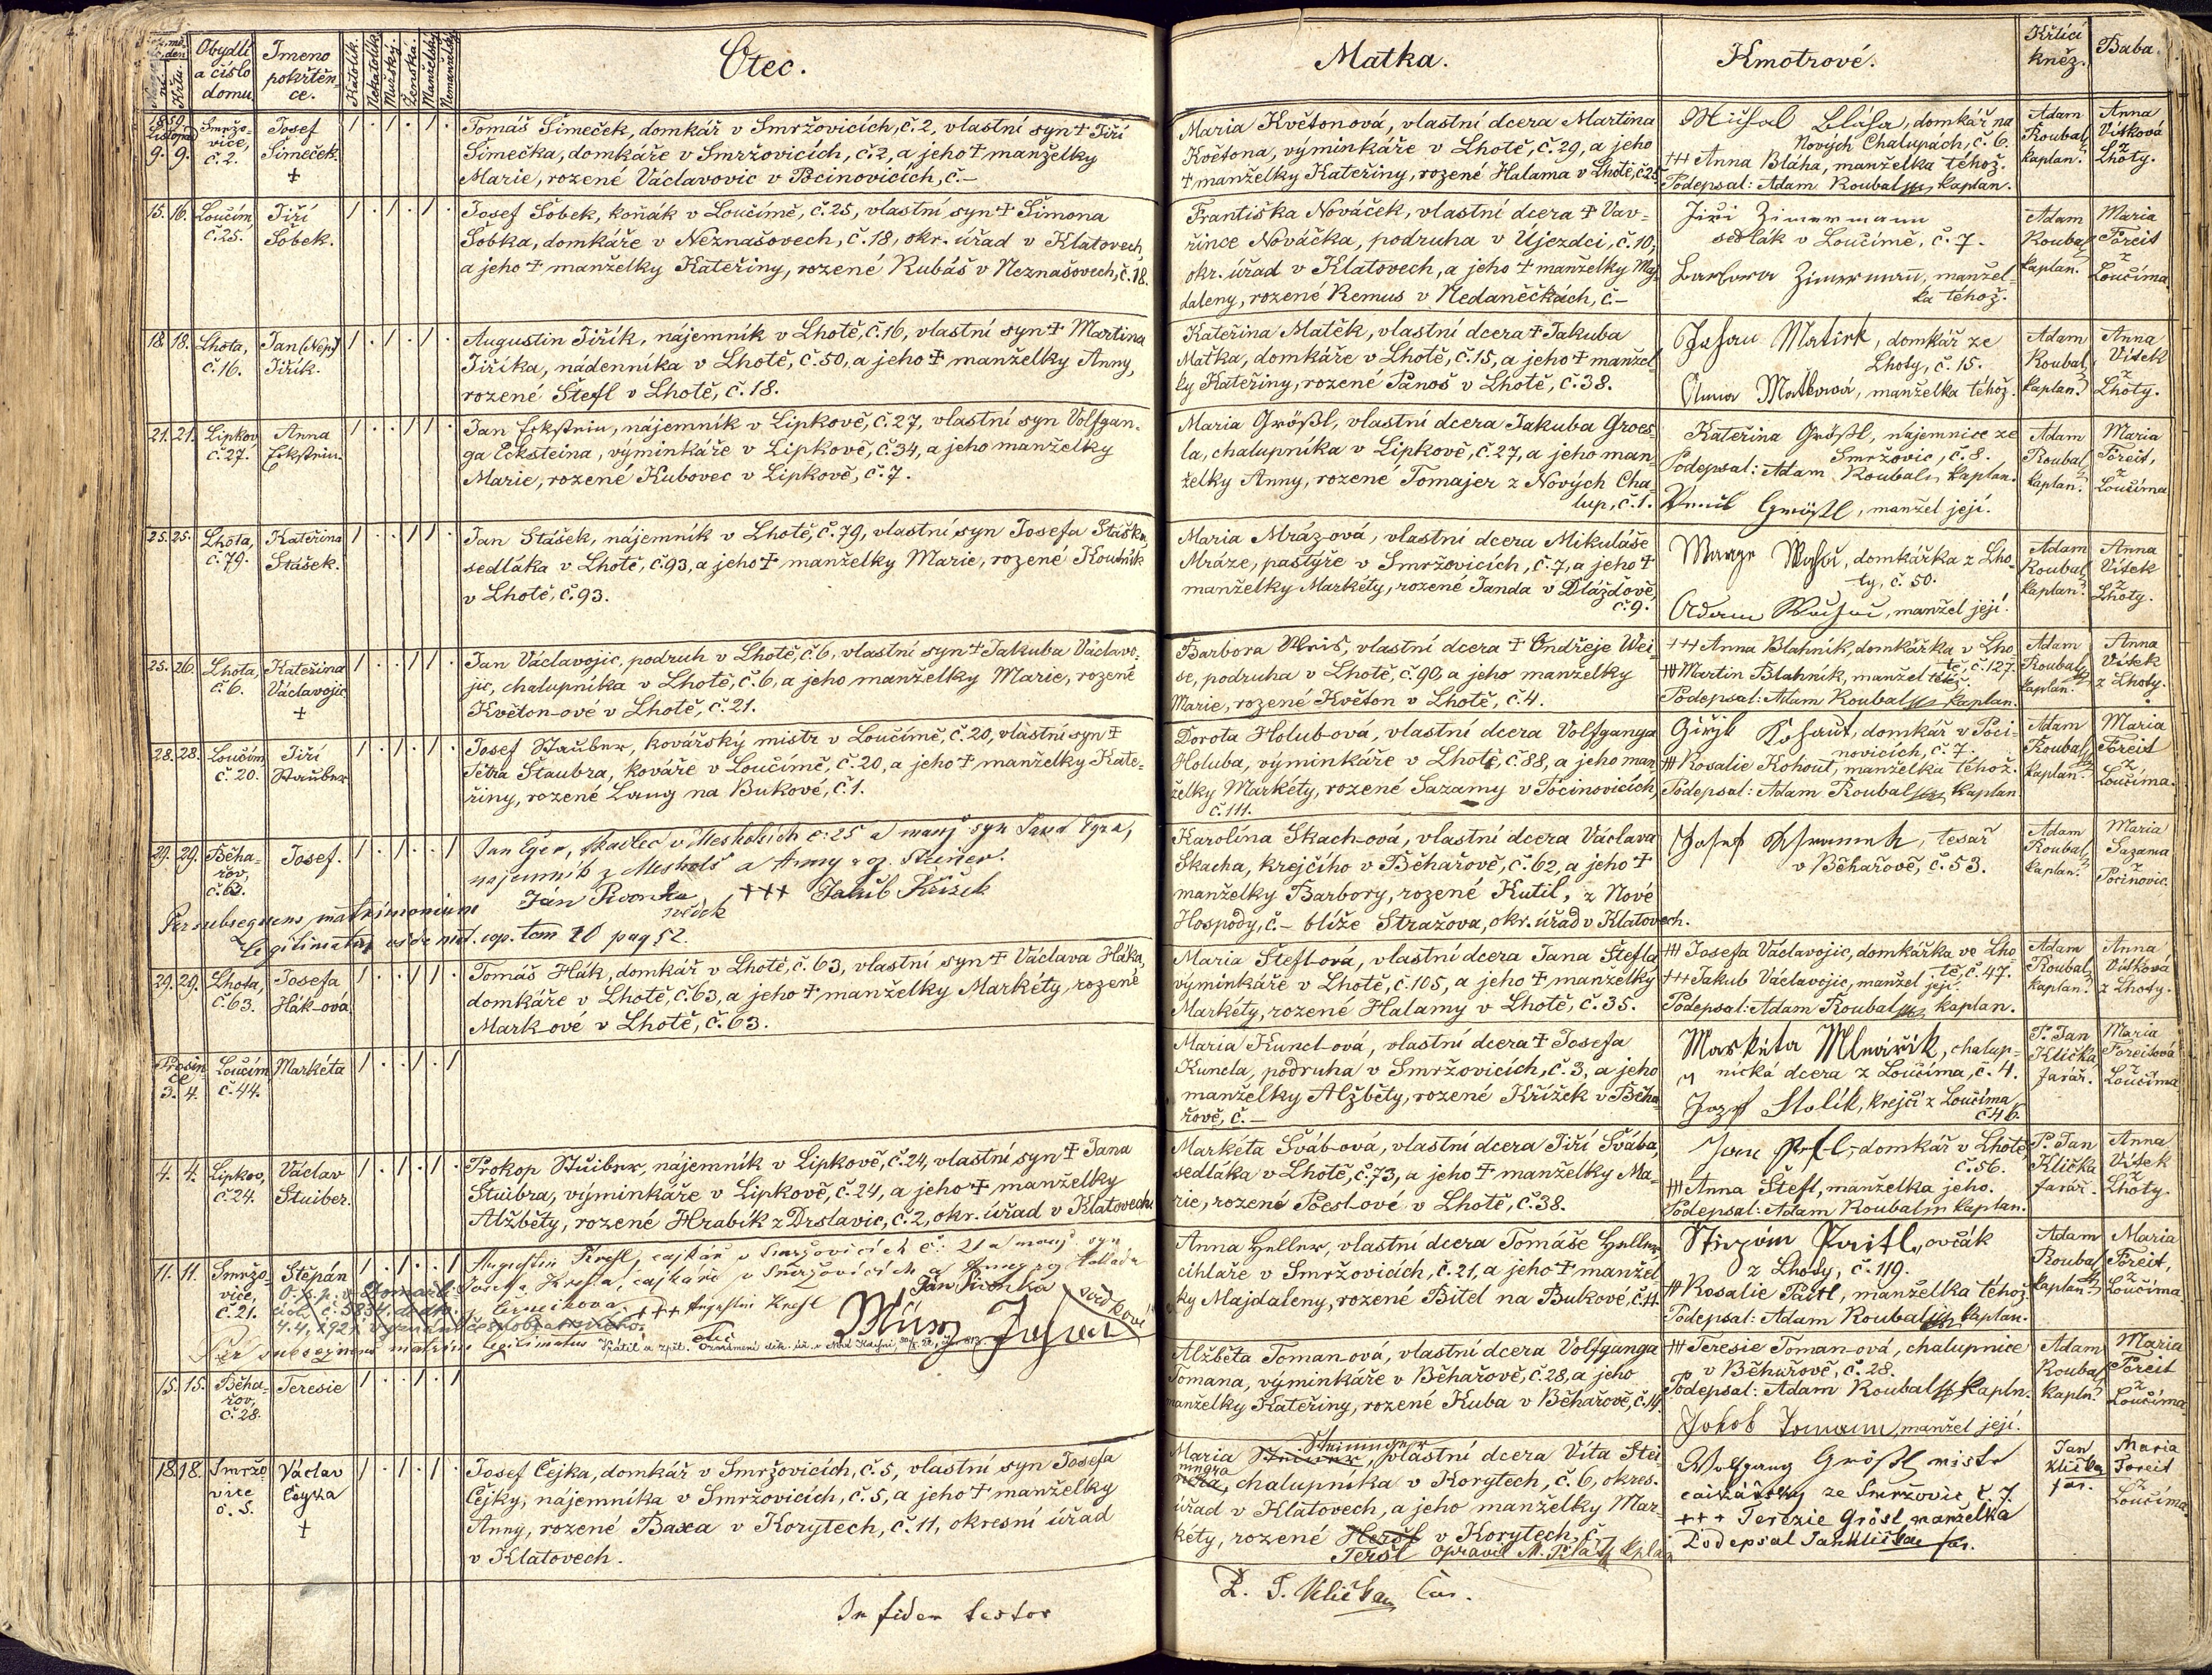 Obydlí
a číslo
domu.
Jmeno
pokřtěn-
ce.
Katolík.
Nekatolík.
Mužský.
Ženská.
Manželský.
Nemanželský.
Otec.
Matka.
Kmotrové.
Křticí
kněz.
Baba.
1859.
Listopad
9. 9.
Smržo-
vice,
č. 2.
Josef
Simeček.
+
Tomáš Simeček, domkář v Smržovicích, č. 2, vlastní syn + Jiří
Simečka, domkáře v Smržovicích, č. 2, a jeho + manželky
Marie, rozené Václavovic v Pocinovicích, č.–
Maria Květonová, vlastní dcera Martina
Května, výminkáře v Lhotě, č. 29, a jeho
+ manželky Kateřiny, rozené Halama v Lhotě, č. 25.
Michal Bláha, domkář na
Nových Chalupách, č. 6.
+++ Anna Bláha, manželka téhož.
Podepsal: Adam Roubal kaplan.
Adam
Roubal,
kaplan.
Anna
Vítková
z
Lhoty.
15. 16.
Loučím,
č. 25.
Jiří
Šobek.
Josef Šobek, koňák v Loučímě, č. 25, vlastní syn + Šimona
Šobka, domkáře v Neznašovech, č. 18, okr. úřad v Klatovech,
a jeho + manželky Kateřiny, rozené Kubáš v Neznašovech, č. 18.
Františka Nováček, vlastní dcera + Vav-
řince Nováčka, podruha v Újezdci, č. 10,
okr. úřad v Klatovech, a jeho + manželky Ma-
daleny, rozené Remus v Nedaněčkách, č –
Jiři Zimermann
sedlák v Loučímě, č. 7.
Barbora Zimerman, manžel-
ka téhož.
Adam
Roubal
kaplan.
Maria
Foreit
z
Loučíma.
18. 18.
Lhota,
č. 16.
Jan (Nep.)
Jiřík.
Augustin Jiřík, nájemník v Lhotě, č. 16, vlastní syn + Martina
Jiříka, nádenníka v Lhotě, č. 50, a jeho + manželky Anny,
rozené Štefl v Lhotě, č. 18.
Kateřina Matěk, vlastní dcera + Jakuba
Maťka, domkáře v Lhotě, č. 15, a jeho + manžel-
ky Kateřiny, rozené Panoš v Lhotě, č. 38.
Johan Matiek, domkář ze
Lhoty, č. 15.
Anna Matková, manželka téhož.
Adam
Roubal,
kaplan.
Anna
Vítek
z
Lhoty.
21. 21.
Lipkov
č. 27.
Anna
Eckstein.
Jan Eckstein, nájemník v Lipkově, č. 27, vlastní syn Volfgan-
ga Ecksteina, výminkáře v Lipkově, č. 34, a jeho manželky
Marie, rozené Kubovec v Lipkově, č. 7.
Maria Größl, vlastní dcera Jakuba Groes-
la, chalupníka v Lipkově, č. 27, a jeho man-
želky Anny, rozené Tomajer z Nových Cha-
lup, č. 1.
Kateřina Größl, nájemnice ze
Smržovic, č. 8.
Podepsal: Adam Roubal kaplan.
Größl, manžel její.
Adam
Roubal
kaplan.
Maria
Foreit,
z
Loučíma
25. 25.
Lhota,
č. 79.
Kateřina
Stášek.
Jan Stášek, nájemník v Lhotě, č. 79, vlastní syn Josefa Stáška,
sedláka v Lhotě, č. 93, a jeho + manželky Marie, rozené Koudník
v Lhotě, č. 93.
Maria Mráz-ová, vlastní dcera Mikuláše
Mráze, pastýře v Smržovicích, č. 7, a jeho +
manželky Markéty, rozené Janda v Dlážďově,
č. 9.
domkářka z Lho-
ty, č. 50.
Adam manžel její.
Adam
Roubal
kaplan.
Anna
Vítek
z
Lhoty.
25. 26.
Lhota,
č. 6.
Kateřina
Václavojic
+
Jan Václavojic, podruh v Lhotě, č. 6, vlastní syn + Jakuba Václavo-
jic, chalupníka v Lhotě, č. 6, a jeho manželky Marie, rozené
Květon-ové v Lhotě, č. 21.
Barbora Weis, vlastní dcera + Ondřeje Wei-
se, podruha v Lhotě, č. 90, a jeho manželky
Marie, rozené Květon v Lhotě, č. 4.
+++ Anna Blahník, domkářka v Lho-
tě, č. 127.
+++ Martin Blahník, manžel též.
Podepsal: Adam Roubal kaplan.
Adam
Roubal
kaplan.
Anna
Vítek
z Lhoty.
28. 28.
Loučím
č. 20.
Jiří
Stauber
Josef Stauber, kovářský mistr v Loučímě, č. 20, vlastní syn +
Petra Staubra, kováře v Loučímě, č. 20, a jeho + manželky Kate-
řiny, rozené Lang na Bukové, č. 1.
Dorota Holub-ová, vlastní dcera Volfganga
Holuba, výminkáře v Lhotě, č. 88, a jeho man-
želky Markéty, rozené Sazamy v Pocinovicích,
č. 111.
Giřgl Kohaut, domkář v Poci-
novicích, č. 7.
+++ Rosalie Kohout, manželka téhož.
Podepsal: Adam Roubal kaplan.
Adam
Roubal,
kaplan.
Maria
Foreit
z
Loučíma.
29. 29.
Běha-
rov,
č. 62.
Josef.
Jan Eger, tkadlec v Meskolích č. 25 a manž. syn Jana Egra,
nájemník z Meskolš a Anny roz. Steiner.
Ján Pivonka +++ Jakub Křížek
svědek
Per subsequens matrimonium
legitimatus vide mat. cop. tom 10 pag 52.
Karolína Skach-ová, vlastní dcera Václava
Skacha, krejčího v Běhařově, č. 62, a jeho +
manželky Barbory, rozené Kutil, z Nové
Hospody, č – blíže Stražova, okr. úřad v Klatovech.
Josef tesař
v Běhařově, č. 53.
Adam
Roubal
kaplan.
Maria
Sazama
z
Pocinovic.
29. 29.
Lhota,
č. 63.
Josefa
Hák-ová.
Tomáš Hák, domkář v Lhotě, č. 63, vlastní syn + Václava Háka,
domkáře v Lhotě, č. 63, a jeho + manželky Markéty, rozené
Mark-ové v Lhotě, č. 63.
Maria Štefl-ová, vlastní dcera Jana Štefla
výminkáře v Lhotě, č. 105, a jeho + manželky
Markéty, rozené Halamy v Lhotě, č. 35.
+++ Josefa Václavojic, domkářka ve Lho-
tě, č. 47.
+++ Jakub Václavojic, manžel její.
Podepsal: Adam Roubal kaplan.
Adam
Roubal
kaplan.
Anna
Vítková
z Lhoty.
Prosin-
ce
3. 4.
Loučím,
č. 44.
Markéta
Maria Kuncl-ová, vlastní dcera + Josefa
Kuncla, podruha v Smržovicích, č. 3, a jeho
manželky Alžběty, rozené Křížek v Běha-
řově, č. –
Markéta Mlnařík, chalup-
nická dcera z Loučíma, č. 4.
Jozef Stolík, krejčí z Loučíma,
č. 46.
P. Jan
Klička,
farář.
Maria
Foreitová
z
Loučíma
4. 4.
Lipkov,
č. 24.
Václav
Stuiber.
Prokop Stuiber, nájemník v Lipkově, č. 24, vlastní syn + Jana
Stuibra, výminkáře v Lipkově, č. 24, a jeho + manželky
Alžběty, rozené Hrabík z Drslavic, č. 2, okr. úřad v Klatovech.
Markéta Šváb-ová, vlastní dcera Jiří Švába,
sedláka v Lhotě, č. 73, a jeho + manželky Ma-
rie, rozené Poesl-ové v Lhotě, č. 38.
Jan Štefl, domkář v Lhotě
č. 56.
+++ Anna Štefl, manželka jeho.
Podepsal: Adam Roubal kaplan.
P. Jan
Klička
farář.
Anna
Vítek
z
Lhoty.
11. 11.
Smržo-
vice,
č. 21.
Štěpán
Augustin Krefl, cajkář v Smržovicích č. 21 a manž. syn
Josefa Krefla, cajkáře v Smržovicích a Anny roz.
+++ Augustin Krefl
otec
Ján Pivonka
svědkové
Per subsequens matrim. legitimatus
Anna Heller, vlastní dcera Tomáše Heller
cihláře v Smržovicích, č. 21, a jeho + manžel-
ky Majdaleny, rozené Bitel na Bukové, č. 11.
ovčák
z Lhoty, č. 119.
+++ Rosalie Raitl, manželka téhož.
Podepsal: Adam Roubal kaplan.
Adam
Roubal
kaplan.
Maria
Foreit,
z
Loučíma.
15. 15.
Běha-
řov,
č. 28.
Teresie
Alžběta Toman-ová, vlastní dcera Volfganga
Tomana, výminkáře v Běhařově, č. 28, a jeho
manželky Kateřiny, rozené Kuba v Běhařově, č. 14.
+++ Teresie Toman-ová, chalupnice
v Běhařově, č. 28.
Podepsal: Adam Roubal kapln.
Jakob Tomann, manžel její.
Adam
Roubal
kapln.
Maria
Foreit
z
Loučíma.
18. 18.
Smržo-
vice
č. 5.
Václav
Čejka
+
Josef Čejka, domkář v Smržovicích, č. 5, vlastní syn Josefa
Čejky, nájemníka v Smržovicích, č. 5, a jeho + manželky
Anny, rozené Baxa v Korytech, č. 11, okresní úřad
v Klatovech.
Steininger
Maria vlastní dcera Víta Stei-
ningra
chalupníka v Korytech, č. 6, okres.
úřad v Klatovech, a jeho manželky Mar-
kéty, rozené v Korytech, č.
Teršl opravil M. kplan
Wolfgang Größl mistr
cajkářský ze Smržovic č. 7.
+++ Terezie Grösl manželka
Podepsal Jan Klička far.
Jan
Klička
far.
Maria
Foreit
z
Loučíma.
In fidem testor
P. J. Klička far.